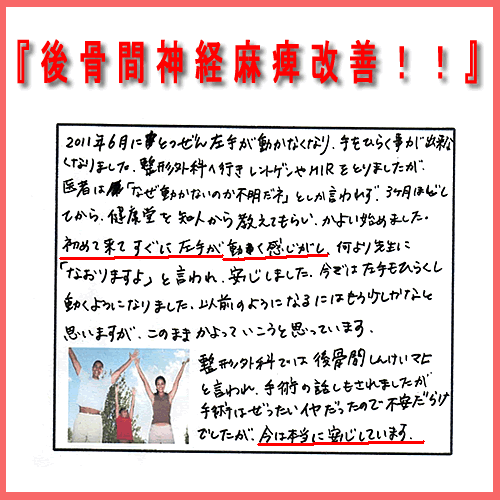 『後骨間神経麻痺改善！！』
2011年6月にとつぜん左手が動かなくなり、手をひらく事が出来な
くなりました。整形外科へ行きレントゲンやMIRをとりましたが、
医者は「なぜ動かないのか不明だネ」としか言われず、3ヶ月ほどし
てから、健康堂を知人から教えてもらい、かよい始めました。
初めて来てすぐに左手が動く感じがし、何より先生に
「なおりますよ」と言われ、安心しました。今では左手もひらくし
動くようになりました。以前のようになるにはもう少しかなと
思いますが、このままかよっていこうと思っています。
整形外科では後骨間しんけいマヒ
と言われ、手術の話しもされましたが
手術はぜったいイヤだったので不安だらけ
でしたが、今は本当に安心しています。